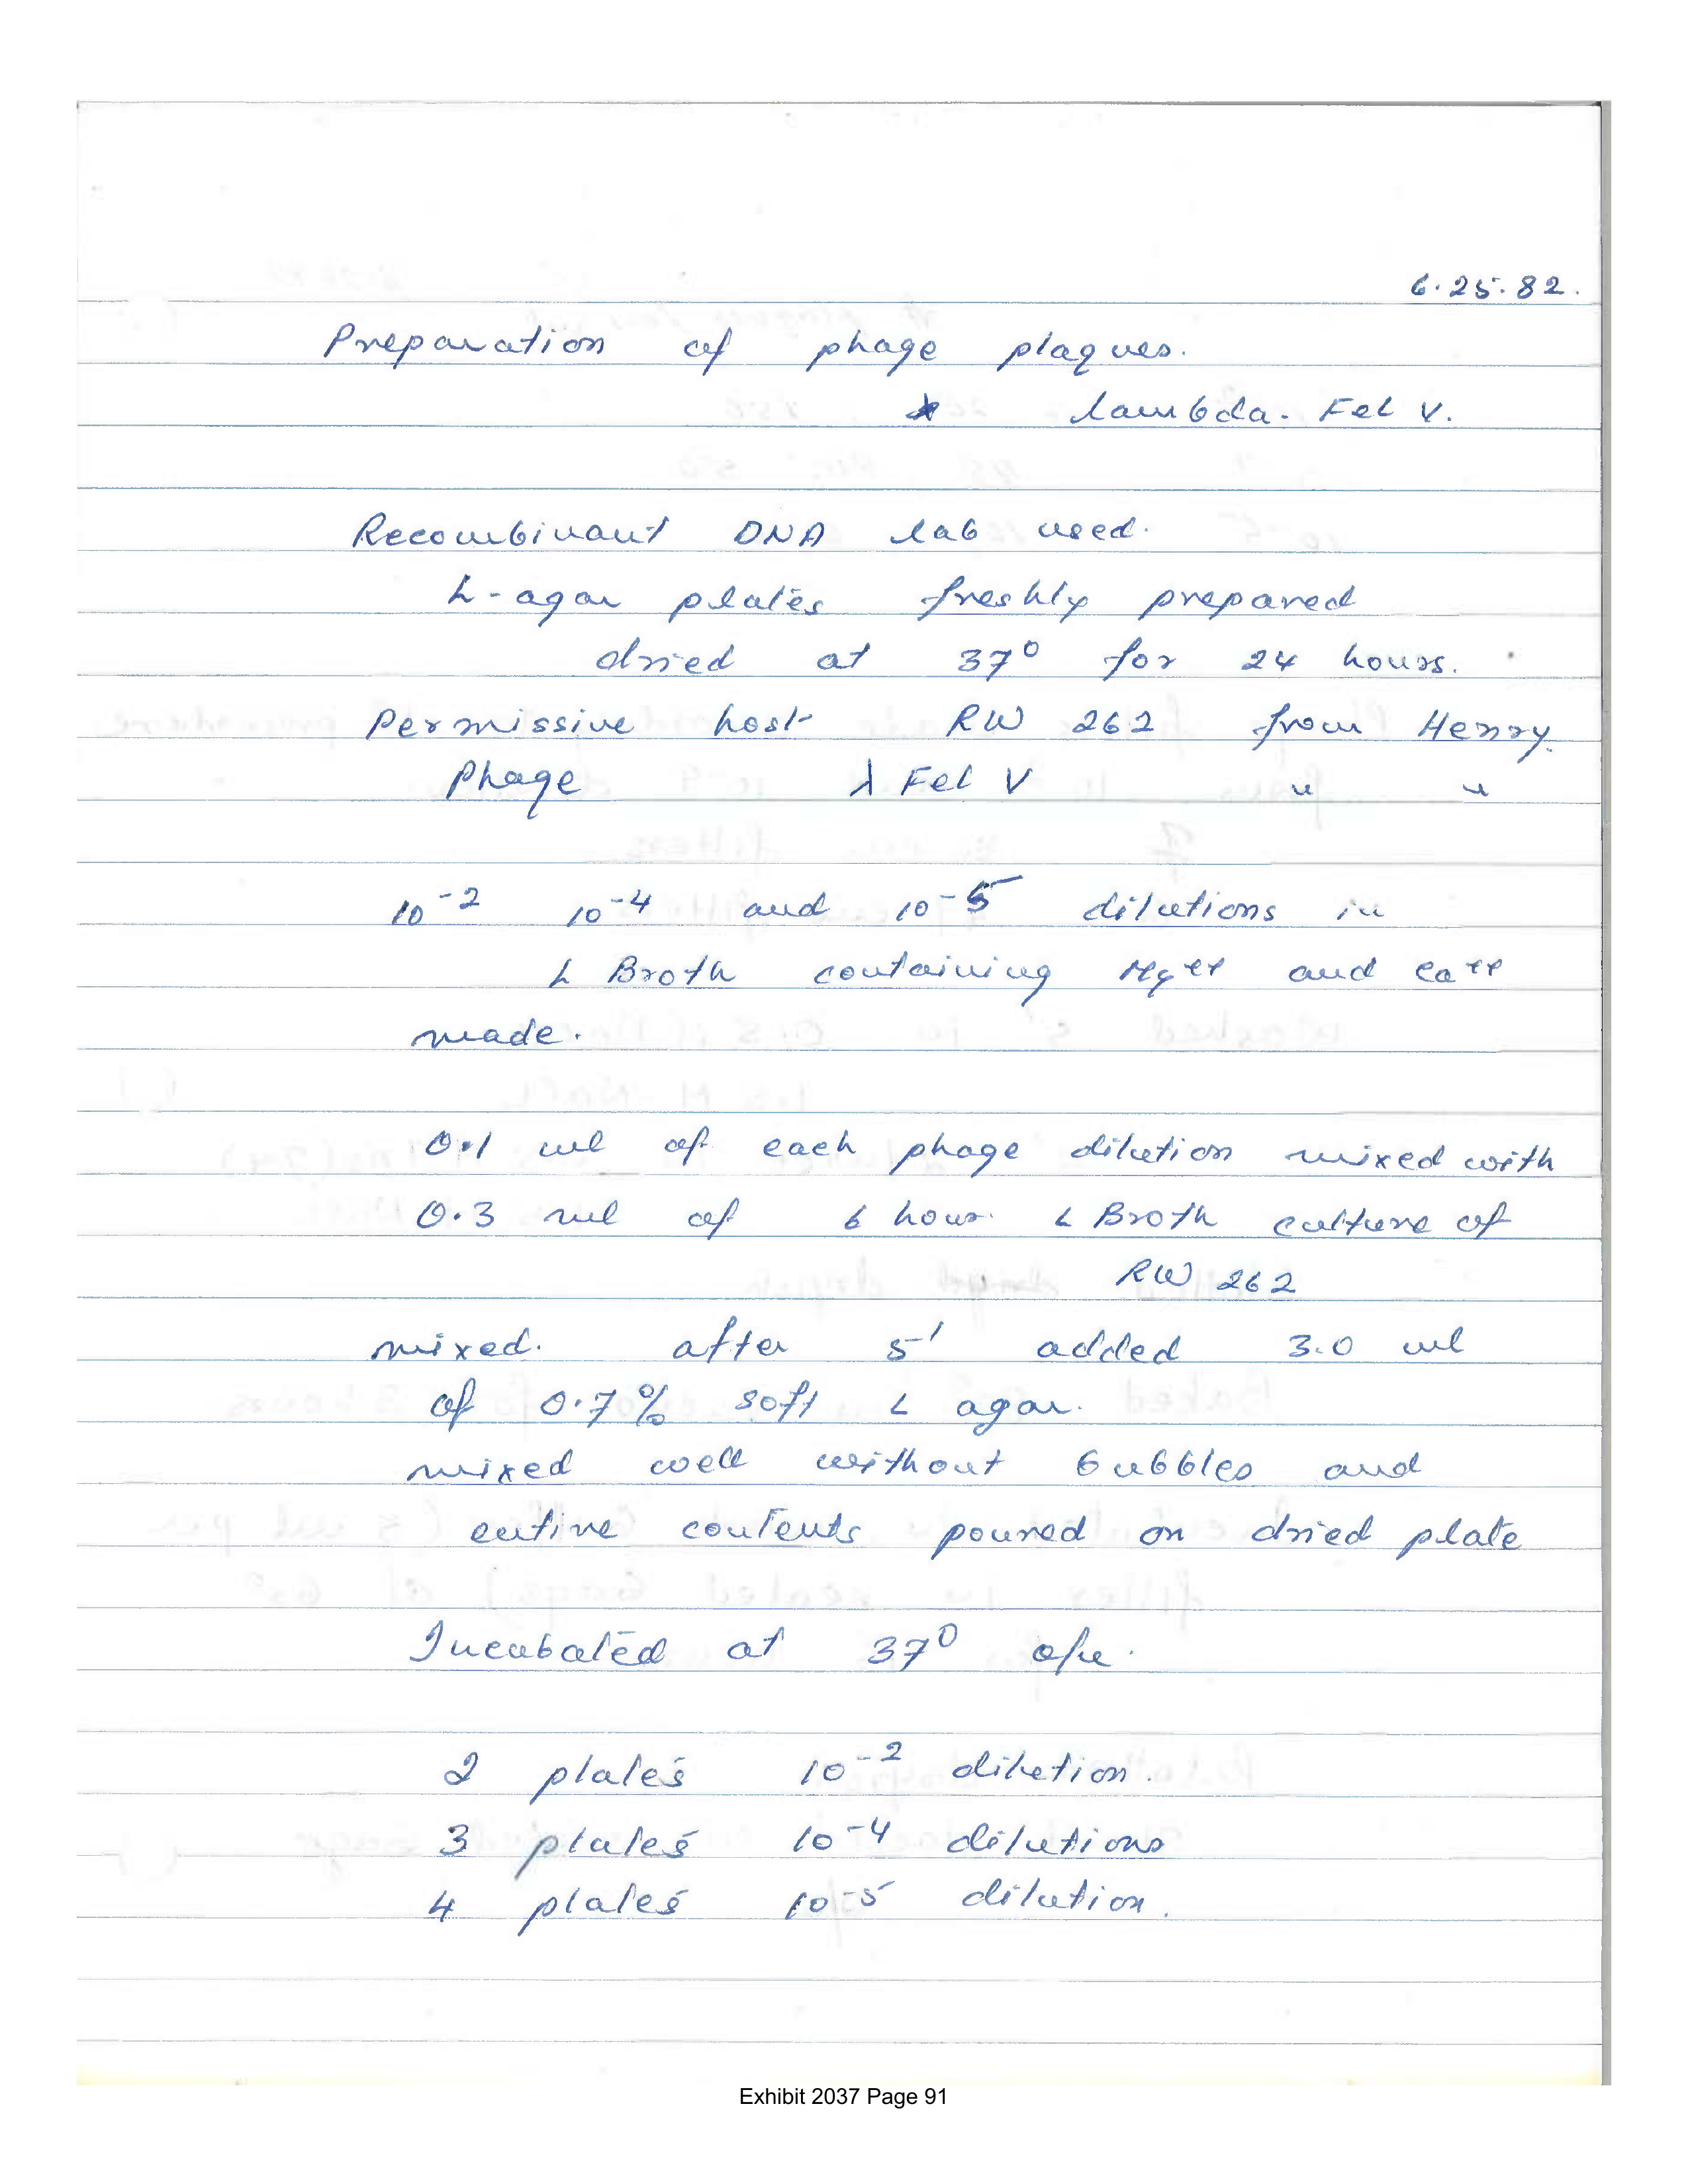 6.25.82.
Preparation of phage plaques.
* lambda. FeL V.
Recombinant DNA lab used.
L-agar plates freshly prepared
dried at 37⁰ for 24 hours.
Permissive host RW 262 from Henry.
Phage λ FeL V " "
10⁻² 10⁻⁴ and 10⁻⁵ dilutions in
L Broth containing Mg⁺⁺ and Ca⁺⁺
made.
0.1 ml of each phage dilution mixed with
0.3 ml of 6 hour L Broth culture of
RW 262
mixed. after 5' added 3.0 ml
of 0.7% soft L agar.
mixed well without bubbles and
entire contents poured on dried plate
Incubated at 37⁰
2 plates 10⁻² dilution.
3 plates 10⁻⁴ dilutions
4 plates 10⁻⁵ dilution.
Exhibit 2037 Page 91